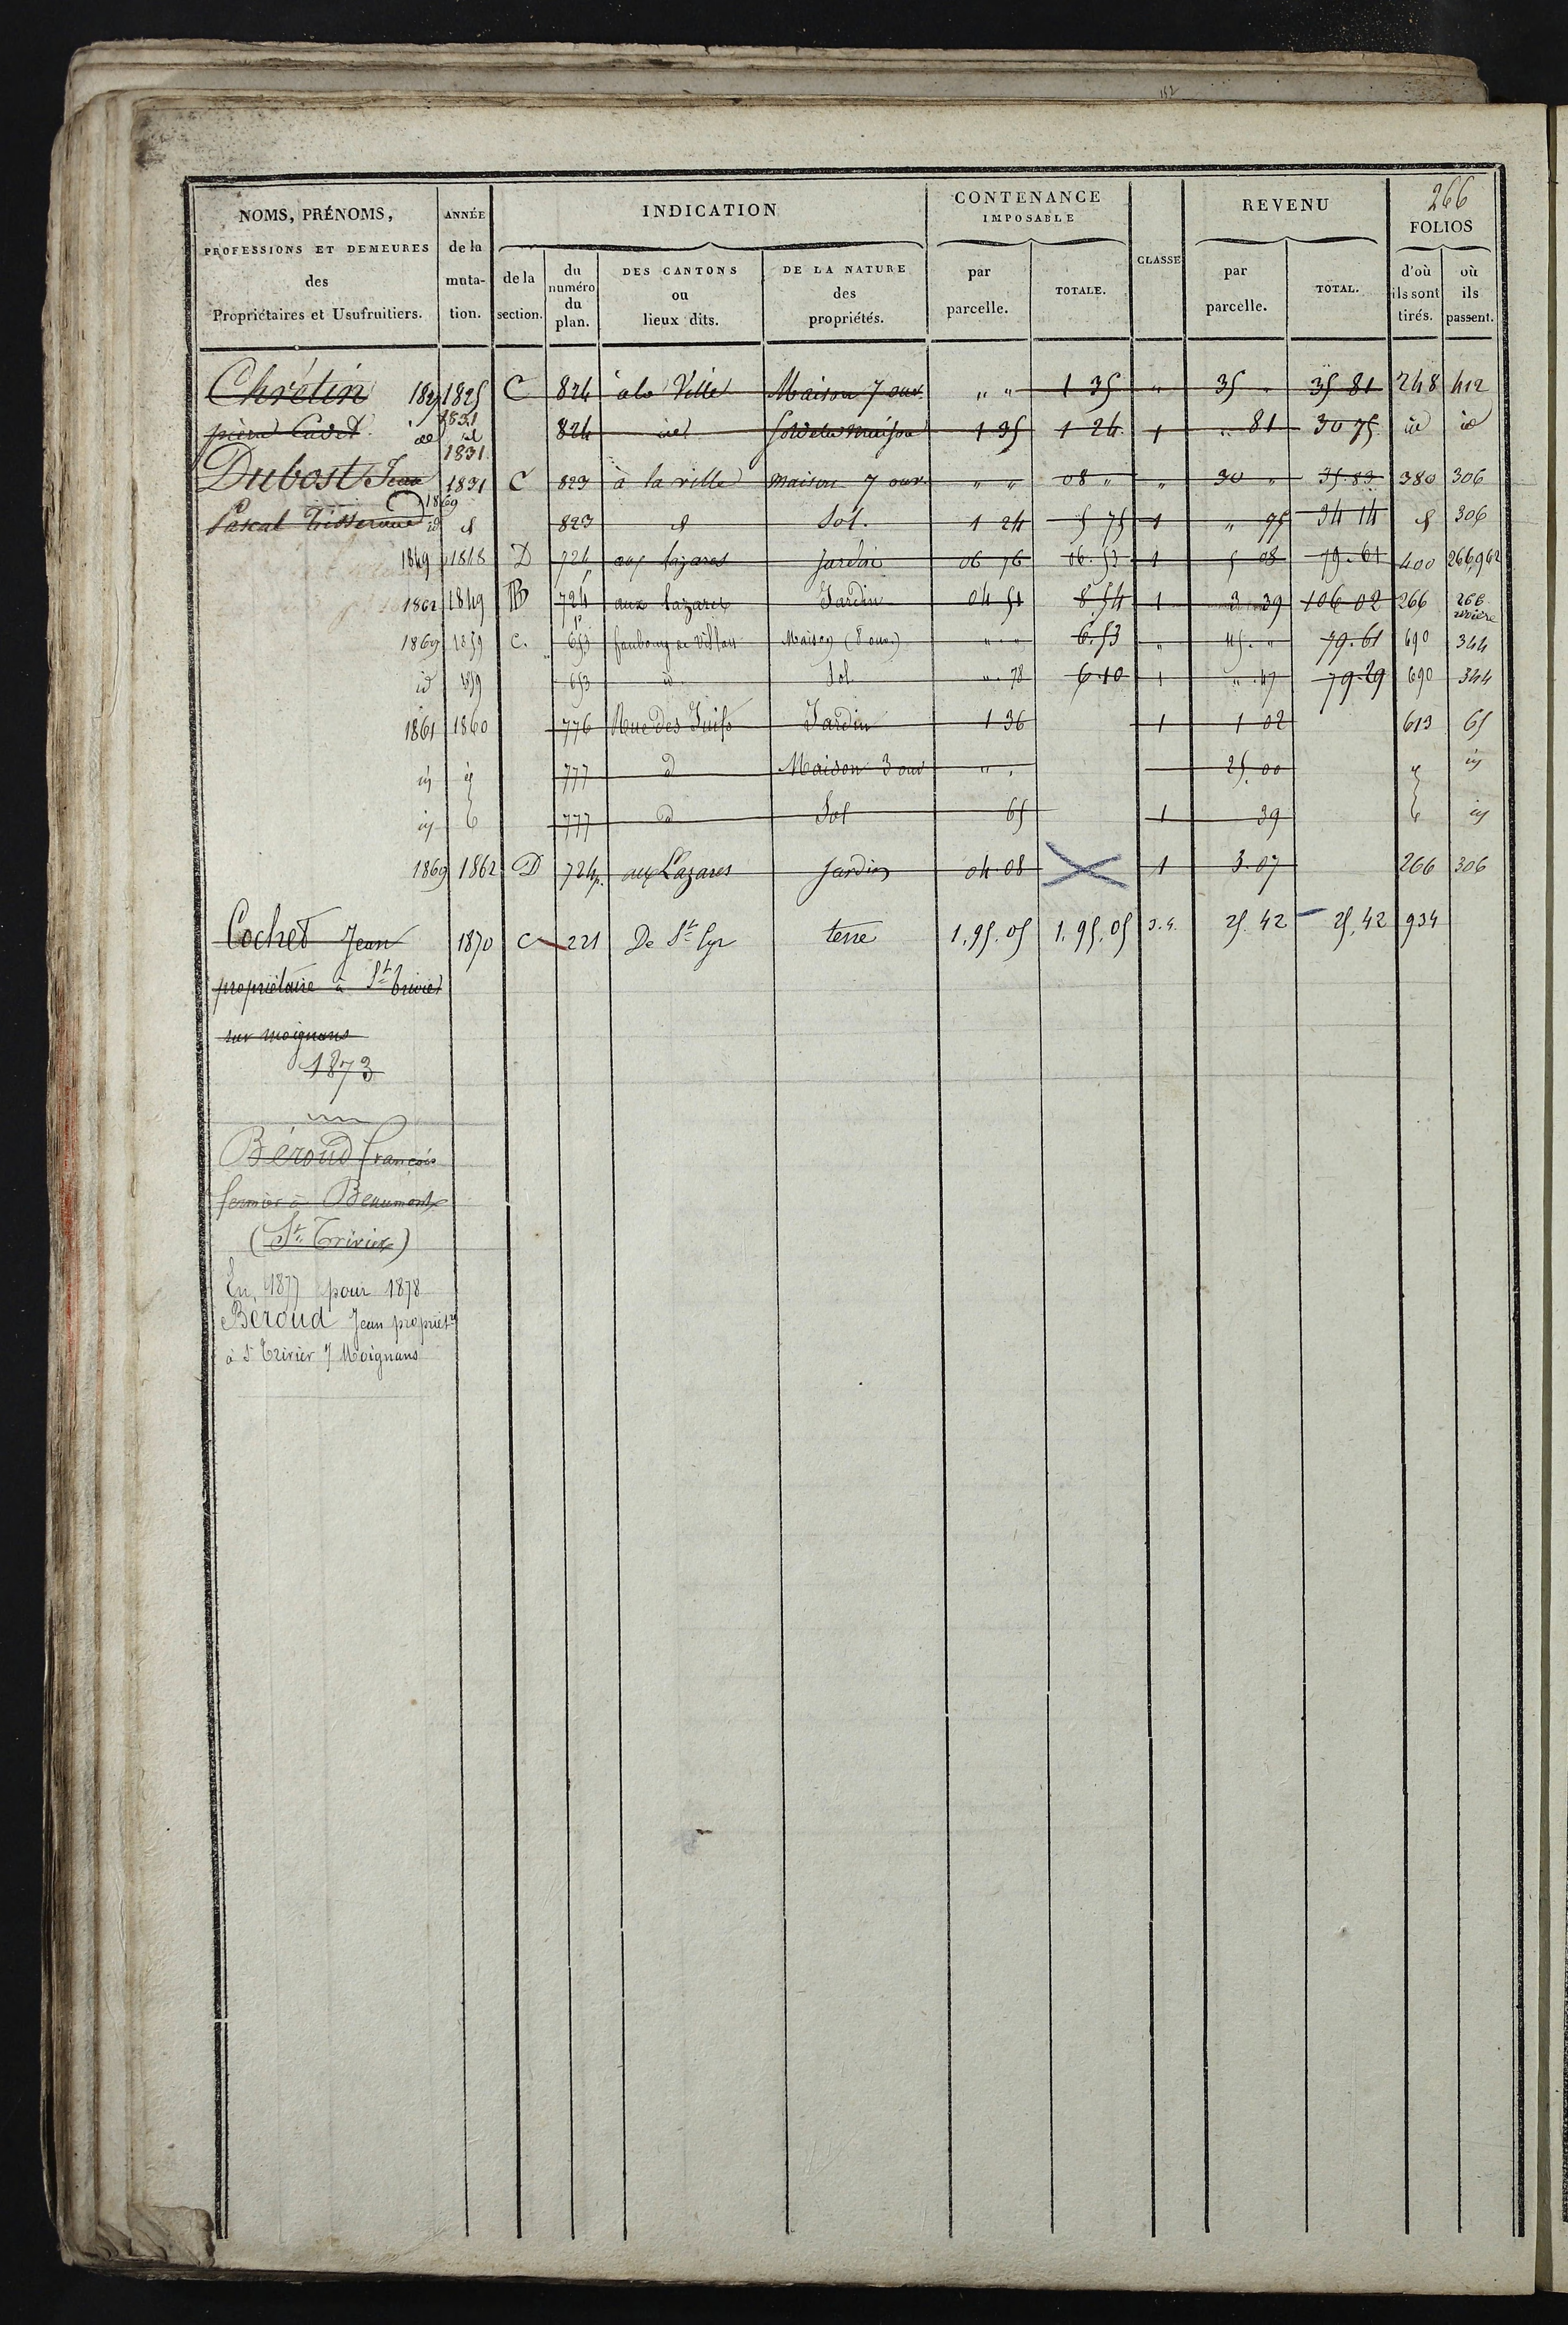 152
266
NOMS, PRÉNOMS, PROFESSIONS ET DEMEURES des Propriétaires et Usufruitiers.
ANNÉE de la muta- tion.
INDICATION
de la section.
du numéro du plan.
DES CANTONS ou lieux dits.
DE LA NATURE des propriétés.
CONTENANCE IMPOSABLE
par parcelle.
TOTALE.
CLASSE
REVENU
par parcelle.
TOTAL.
FOLIOS
d'où ils sont tirés.
où ils passent.
Chrétin 1825 C 824 à la Ville Maison 7 ouv " " 1 35 " 35 " 35 81 248 412
pierre Cadet id 1831 id 824 id Sol de la maison 1 35 1 24 1 " 81 30 75 id id
1831
Dubost Jean 1831 C 823 à la ville maison 7 ouv " " 08 " 30 " 35.83 380 306
1869
Pascal id d 823 d Sol. 1 24 5 75 1 " 95 34 14 d 306
1849 1848 D 724 aux lazares Jardin 06 76 06.53 1 5 08 79.61 400 266,962
1862 1849 B 724 p aux lazares Jardin 04 51 8.54 1 3 39 106 02 266 266
1869 1859 C. 653 faubourg de Villars Maison (8 ouv.) " " 6.53 " 45. " 79.61 690 344
id 1859 653 id Sol ". 78 6.10 1 ". 47 79.29 690 344
1861 1860 776 Rue des Juifs Jardin 1 36 1 1 02 613 65
id id 777 d Maison 3 ouv " " 25.00 id id
id id 777 d Sol 65 1 39 id id
1869 1862 D 724 p. aux Lazares Jardin 04.08 1 3.07 266 306
Cochet Jean 1870 C 221 De St Cyr terre 1.95.05 1.95.05 3.4. 25.42 25.42 934
propriétaire à St Trivier
sur moignans
1873
Béroud François
fermier à Beaumont
(St Trivier)
En 1877 pour 1878
Béroud Jean propriétre
à St Trivier s/ Moignans